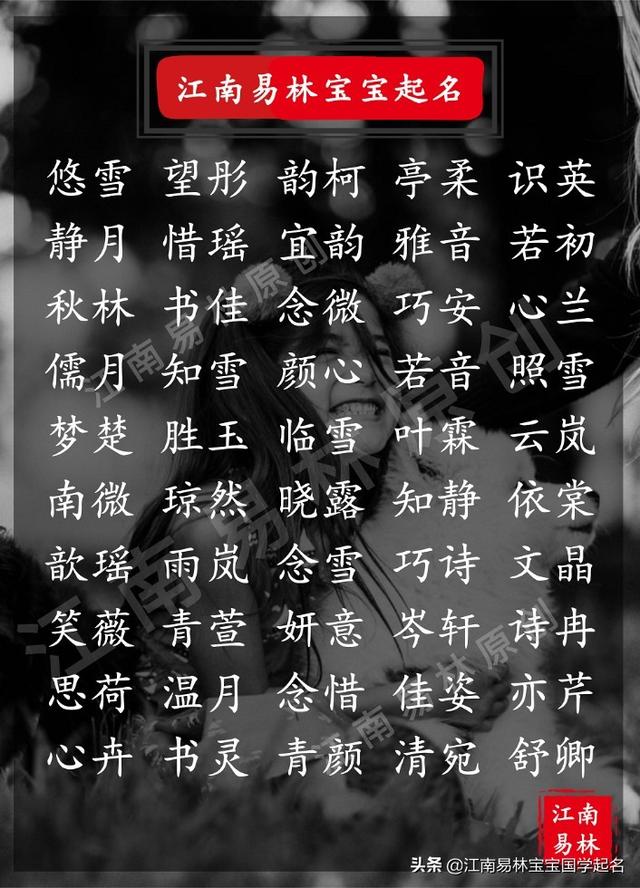 江南易林宝宝起名
悠雪 望彤 韵柯 亭柔 识英
静月 惜瑶 宜韵 雅音 若初
秋林 书佳 念微 巧安 心兰
儒月 知雪 颜心 若音 照雪
梦楚 胜玉 临雪 叶霖 云岚
南微 琼然 晓露 知静 依棠
歆瑶 雨岚 念雪 巧诗 文晶
笑薇 青萱 妍意 岑轩 诗冉
思荷 温月 念惜 佳姿 亦芹
心卉 书灵 青颜 清宛 舒卿
江南易林原创
江南易林原创
江南易林原创
江南
易林
头条 @江南易林宝宝国学起名